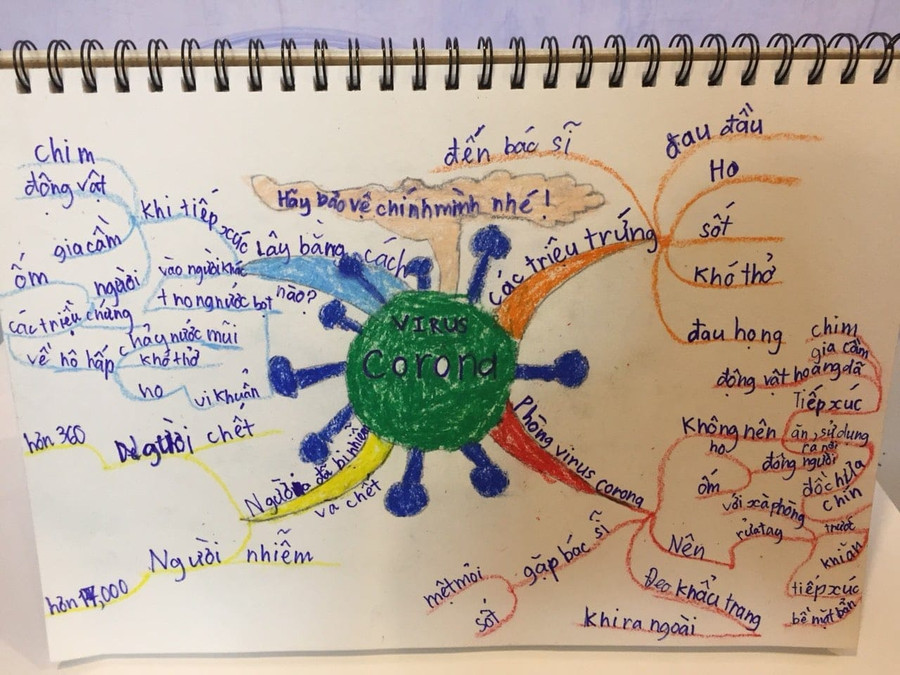 VIRUS
Corona
Hãy bảo vệ chính mình nhé!
đến bác sĩ
các triệu trứng
đau đầu
Ho
sốt
Khó thở
đau họng
Lây bằng cách
nào?
khi tiếp xúc
chim
động vật
gia cầm
người
vào người khác
ốm
trong nước bọt
các triệu chứng
về hô hấp
chảy nước mũi
khó thở
ho
vi khuẩn
Người đã bị nhiễm
và chết
Người chết
hơn 360
Người nhiễm
hơn 17,000
Phòng virus corong
Không nên
Tiếp xúc
chim
gia cầm
động vật hoang dã
ăn, sử dụng
đồ chưa
chín
ra nơi
đông người
ho
ốm
Nên
rửa tay
với xà phòng
trước
khi ăn
tiếp xúc
bề mặt bẩn
Đeo khẩu trang
khi ra ngoài
gặp bác sĩ
mệt mỏi
sốt